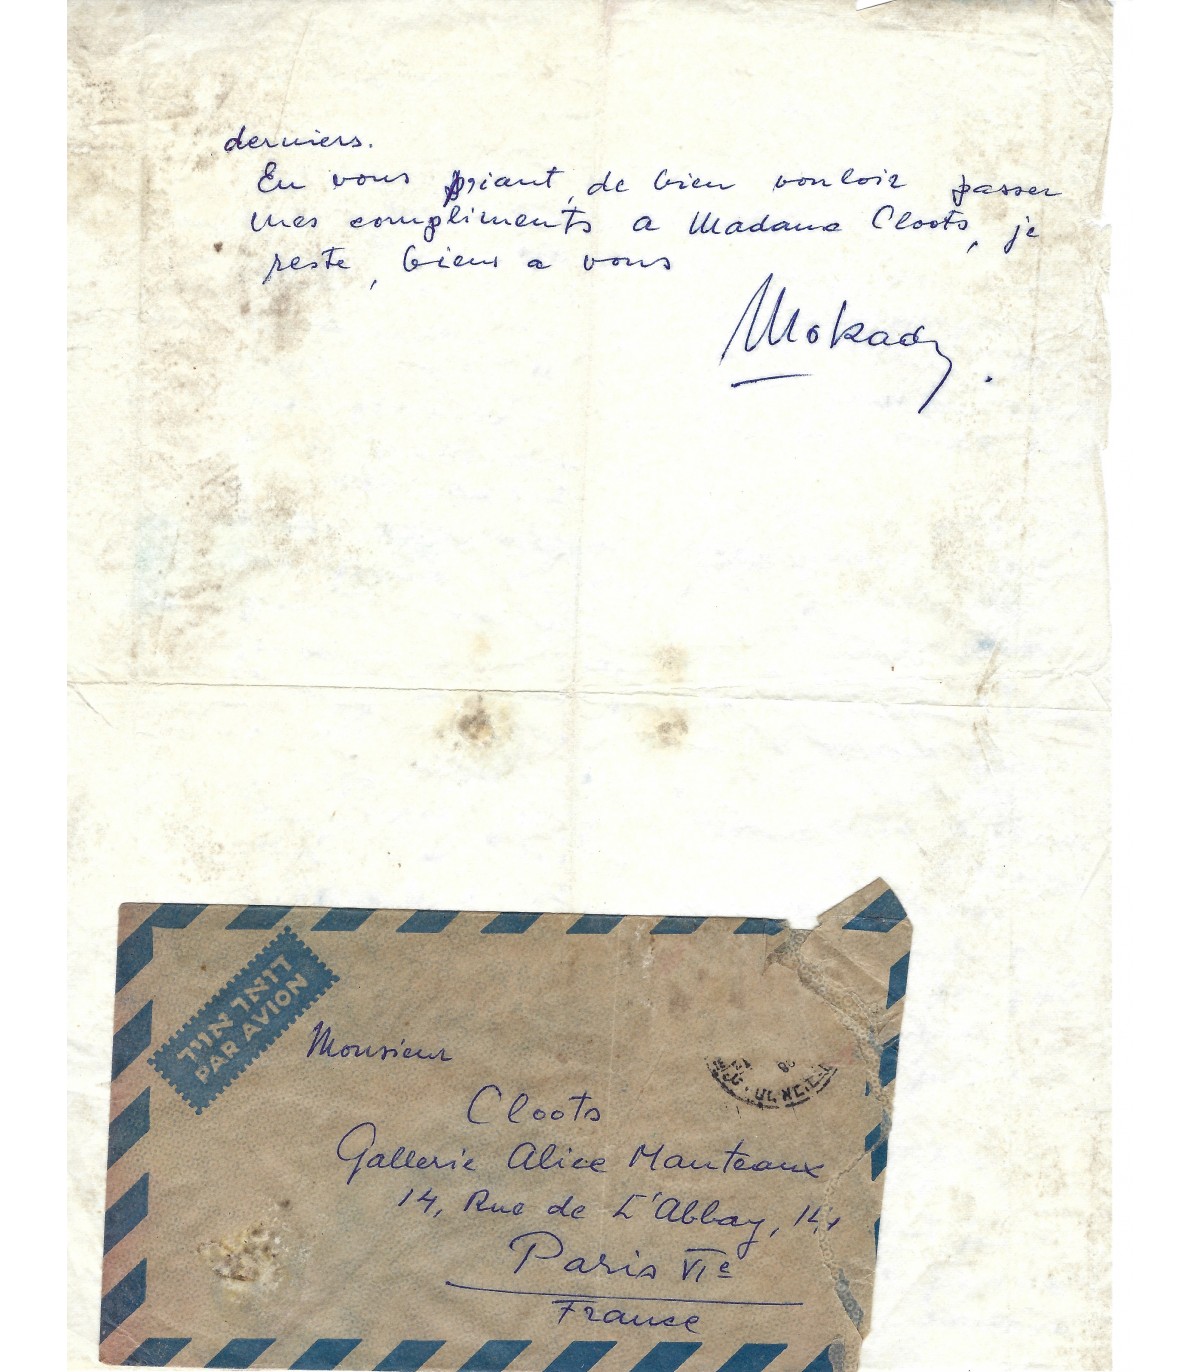 derniers.
En vous priant, de bien vouloir passer
mes compliments a Madame Cloots, je
reste, bien a vous
Mokady.
דואר אויר
PAR AVION
Monsieur
Cloots
Gallerie Alice Manteaux
14, Rue de L'Abbay, 14,
Paris VIe
France
תל אביב-יפו